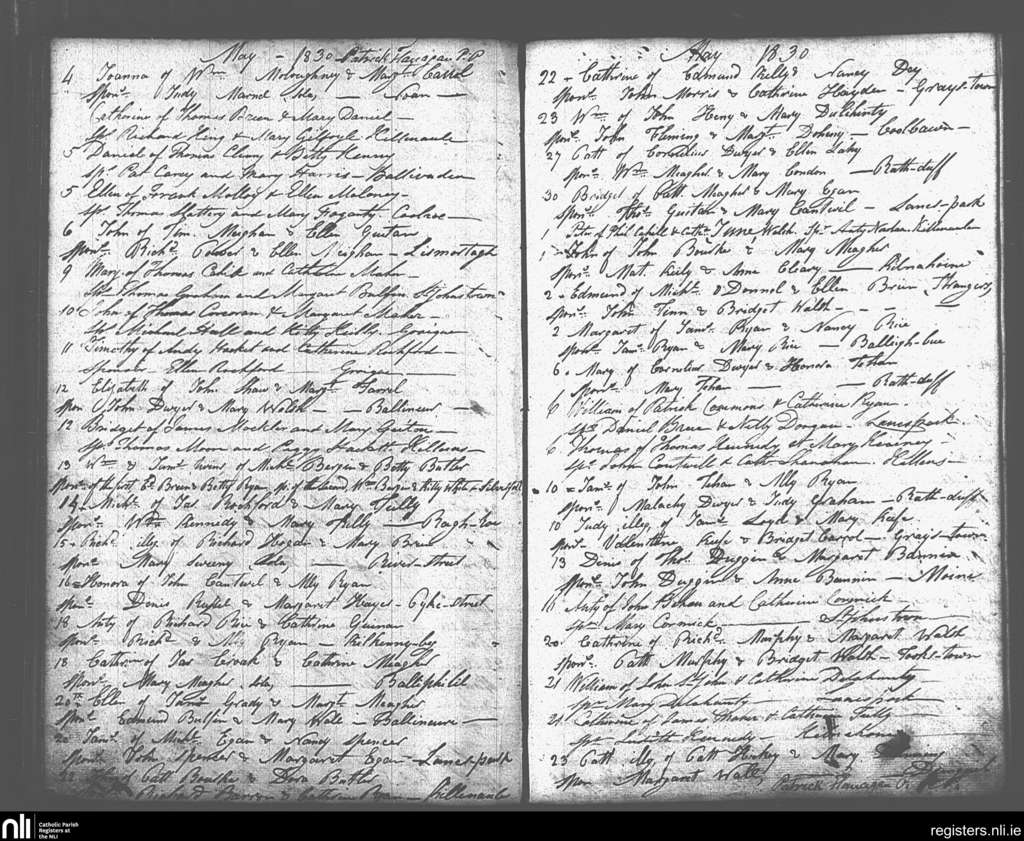 May - 1830 Patrick Flanagan P.P
4 Joanna of Wm Moloughney & Margt Carrol
Sponr. Judy Marnel Sola, — Noan —
Catherine of Thomas Breen & Mary Daniel —
Sps Richard King & Mary Gilfoyle Killenaule
5 Daniel of Thomas Cleary & Betty Kenny
Sps. Pat Carey and Mary Harris —
5 Ellen of Frank Molloy & Ellen Maloney —
Sps Thomas Slattery and Mary Fogarty. Coolroe —
6 John of Tim. Meighan & Ellen Guitar
Sponr. Richd. Power & Ellen Meighan — Lismortagh
9 Mary of Thomas and Catherine Maher —
Sps Thomas Graham and Margaret Bulfin. St Johnstown
10 John of Thomas Corcoran & Margaret Maher —
Sps Michael Hall and Kitty Reilly. Graigue —
11 Timothy of Andy Hacket and Catherine Rochford —
Sponsor Ellen Rochford Graigue —
12 Elizabeth of John Shaw & Margt. Farrel
Spon John Dwyer & Mary Walsh — Ballinure —
12 Bridget of James Mockler and Mary
Sps Thomas Moon and Peggy Hackett.
13 Wm & Jams. twins of Michl. Bergin & Betty Butler
Sponr. of the first Ed. Breen & Betty Ryan sps. of the second, Wm Bergin & Kitty White
14 Michl. of Jas Rochford & Mary Tully
Sponr. Wm Kennedy & Mary Tully —
15 Richd. illeg. of Richard Hogan & Mary Brien
Sponr. Mary Sweeny Sola, — River-street
16 Honora of John Cantwil & Ally Ryan
Sponr. Denis & Margaret Hayes —
18 Anty of Richard Rice & Cathrine Guinan
Sponr. Richd. & Ryan
18 Cathrine of Jas Croak & Cathrine Meagher
Sponr. Mary Meagher Sola, —
20th Ellen of James Grady & Margt. Meagher
Sponr. Edmund Bulfin & Mary Wale — Ballinure —
20 Jams. of Michl. Egan & Nancy Spencer
Sponr. John Spencer & Margaret Egan — Lanes-park
22 of Patt Bourke & Butler
Richard & Cathrine Ryan — Killenaule
May 1830
22 - Cathrine of Edmund Kelly & Nancy Dey
Sponr. John Morris & Cathrine Hayden — Grays-town
23 Wm. of John Heny & Mary Dulchinty
Sponr. John Fleming & Margt. Doheny — Coolbawn —
27 Patt of Cornelius Dwyer & Ellen Lahy
Sponr. Wm. Meagher & Mary Condon — Rath-duff
30 Bridget of Patt. Meagher & Mary Egan
Sponr. Thos. Guitar & Mary Cantwil — Lanes-park
June
1 Peter of Phil Cahill & Cathe. Walsh. Sps. Anty Killenaule
1 - John of John Bourke & Mary Meagher
Sponr. Mat. Kiely & Anne Cleary —
2 - Edmund of Michl. O Donnel & Ellen Brien, Strangers
Sponr. John Finn & Bridget Walsh —
2 Margaret of Jams. Ryan & Nancy Rice
Sponr. Jams. Ryan & Mary Rice —
6. Mary of Cornelius Dwyer & Honora Tehan
Sponr. Mary Tehan — Rath-duff
6 William of Patrick Commons & Catherine Ryan.
Sps Daniel & Nelly Dorgan. Lanespark.
6 Thomas of Thomas Kennedy et Mary Kearney —
Sps. John Cantwell & Cath Shanahan.
10 = Jams. of John Tehan & Ally Ryan
Sponr. Malachy Dwyer & Judy Graham — Rath-duff
10 Judy illeg. of Jams. Loyd & Mary Keefe.
Sponr. Valentine Keefe & Bridget Carrol — Grays-town
13 Denis of Thos. Duggin & Margaret Bannin
Sponr. John Duggin & Anne Bannin —
16 Anty of John Behan and Catherine Cormick —
Sps Mary Cormick — St Johnstown
20. Cathrine of Richd. Murphy & Margaret Walsh
Sponr. Patt Murphy & Bridget Walsh —
21 William of John St John & Catherine Delahunty —
Sps Mary Delahunty — Lanespark —
21 Catherine of James Maher & Catherine Tully
Sps Judith Kennedy —
23 Patt illeg. of Patt & Mary
Spon. Margaret Wall
Patrick Flanagan P. P.
nli Catholic Parish
Registers at
the NLI
registers.nli.ie